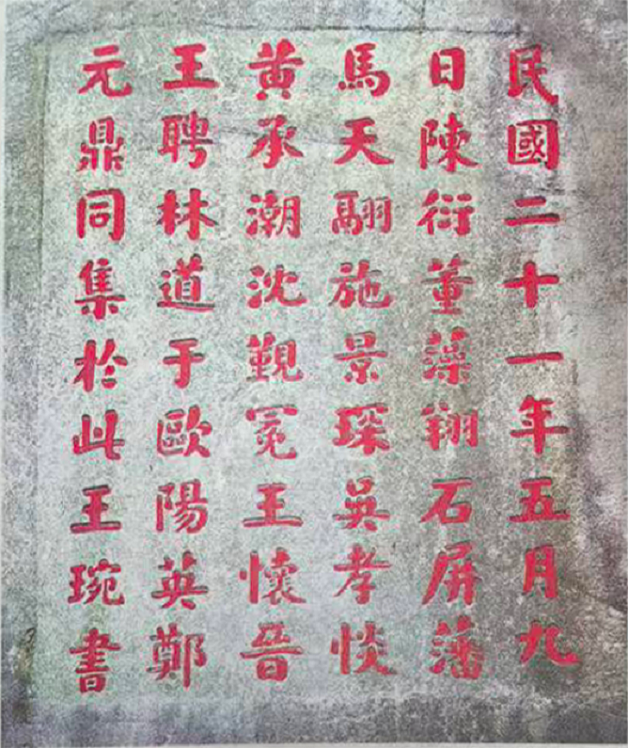 民國二十一年五月九
日陳衍董藻翔石屏藩
馬天翮施景琛吳孝惔
黃承潮沈覲冕王懷晉
王聘林道于歐陽英鄭
元鼎同集於此王琬書